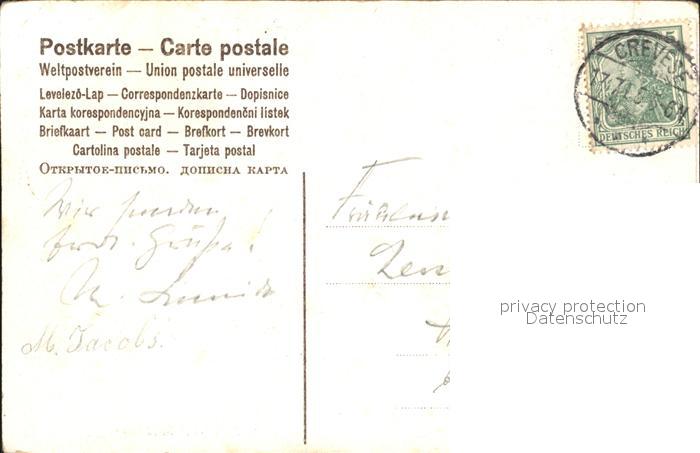 Postkarte — Carte postale
Weltpostverein — Union postale universelle
Levelező-Lap — Correspondenzkarte — Dopisnice
Karta korespondencyjna — Korespondenční listek
Briefkaart — Post card — Brefkort — Brevkort
Cartolina postale — Tarjeta postal
Открытое-письмо. дописна карта
Wir senden
herzl. Grüße!
M. Jacobs.
Fräulein
5
CREFELD
DEUTSCHES REICH
privacy protection
Datenschutz